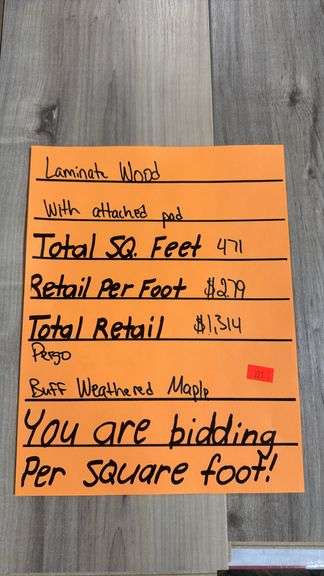 Laminate Wood
With attached pad
Total SQ. Feet 471
Retail Per Foot $2.79
Total Retail $1,314
Pergo
Buff Weathered Maple
121
You are bidding
Per square foot!